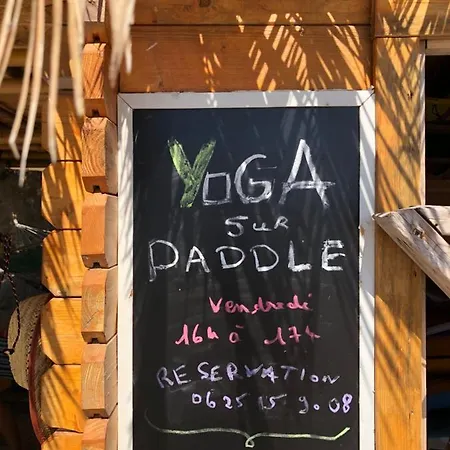 YOGA
SUR
PADDLE
Vendredi
16h à 17h
RESERVATION
06 25 15 90 08